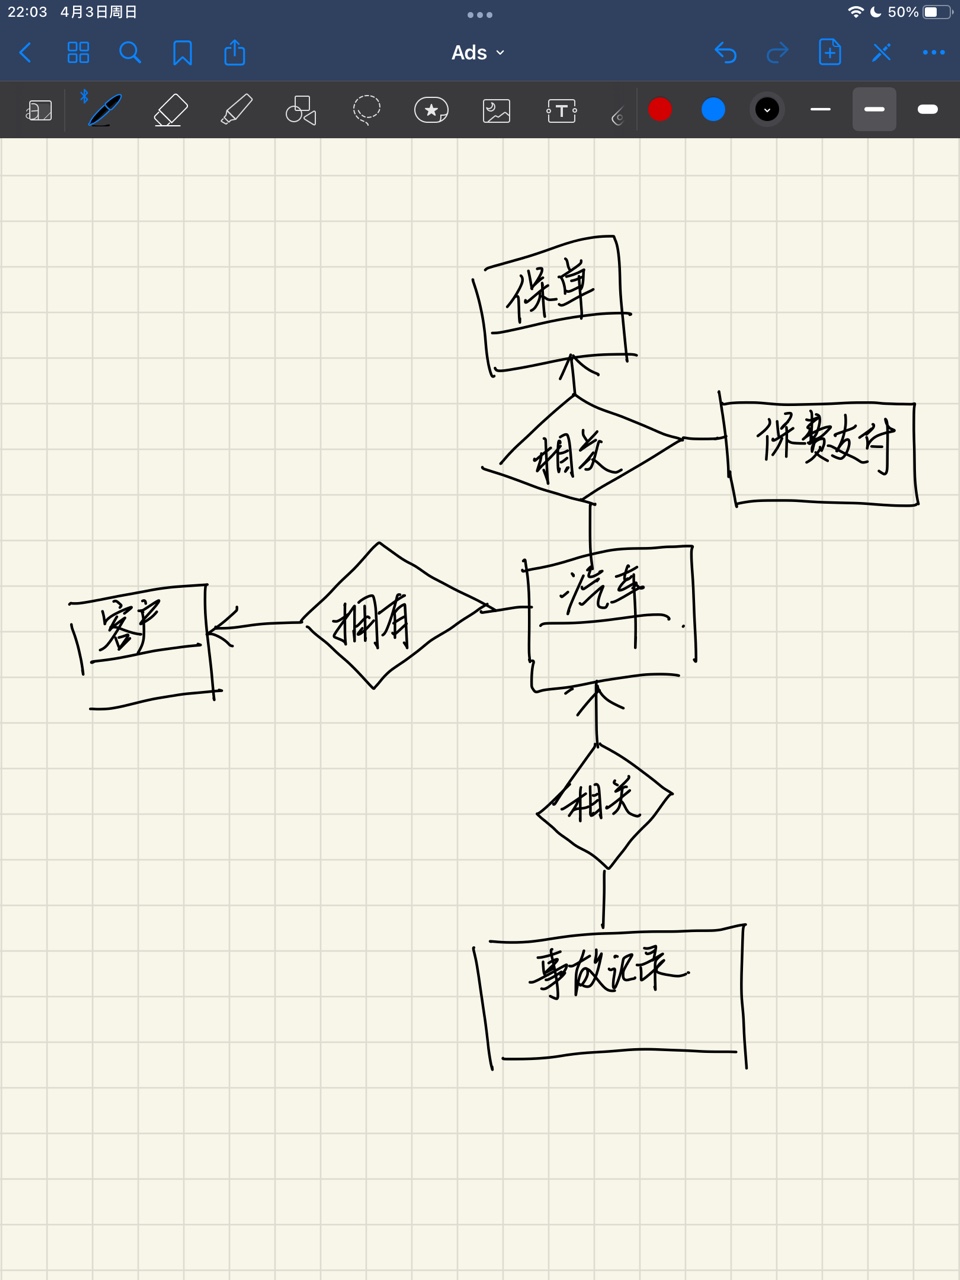 22:03 4月3日周日
50%
Ads
T
保单
相关
保费支付
汽车
客户
拥有
相关
事故记录